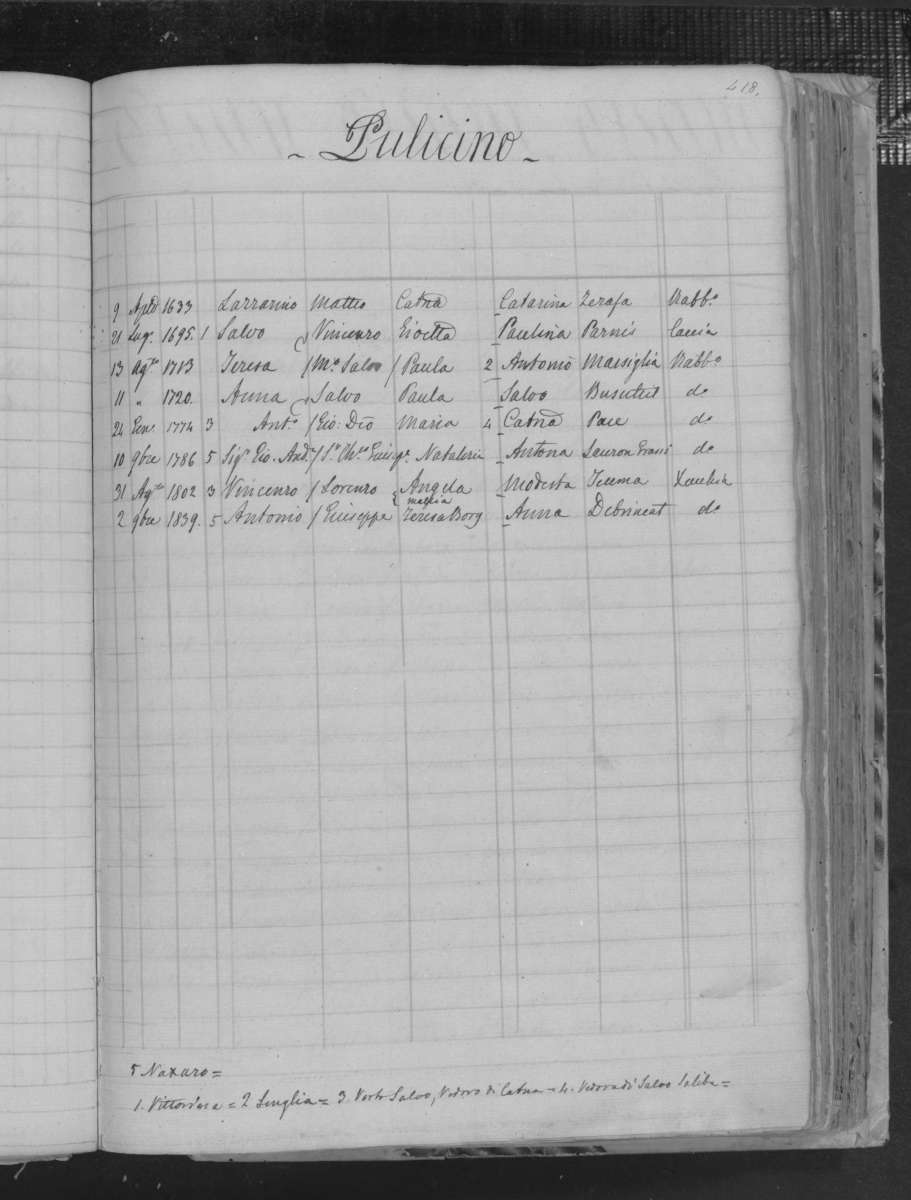 418.
- Pulicino -
9 Aple 1633 Lazzarino Matteo Catna Catarina Zerafa Rabbo
21 Lug. 1695. 1 Salvo Vincenzo Gioetta Paulina Parnis Caccia
13 Agto 1713 Teresa / Mo Salvo / Paula 2 Antonio Marsiglia Rabbo
11 " 1720. Anna Salvo Paula Salvo Busuttil do
24 Gen. 1774 3 Anto / Gio: Dio Maria 4 Catna Pace do
10 9bre 1786 5 Sigr Gio. And. / Natalizia Antona do
31 Agto 1802 3 Vincenzo / Lorenzo Angela Modesta
2 9bre 1839. 5 Antonio / Giuseppe Teresa Borg Anna Debrincat do
5 Naxaro =
1. Vittoriosa = 2 Senglia = 3 Porto Salvo, Vedovo di Catna = 4. Vedova di Salvo Saliba =